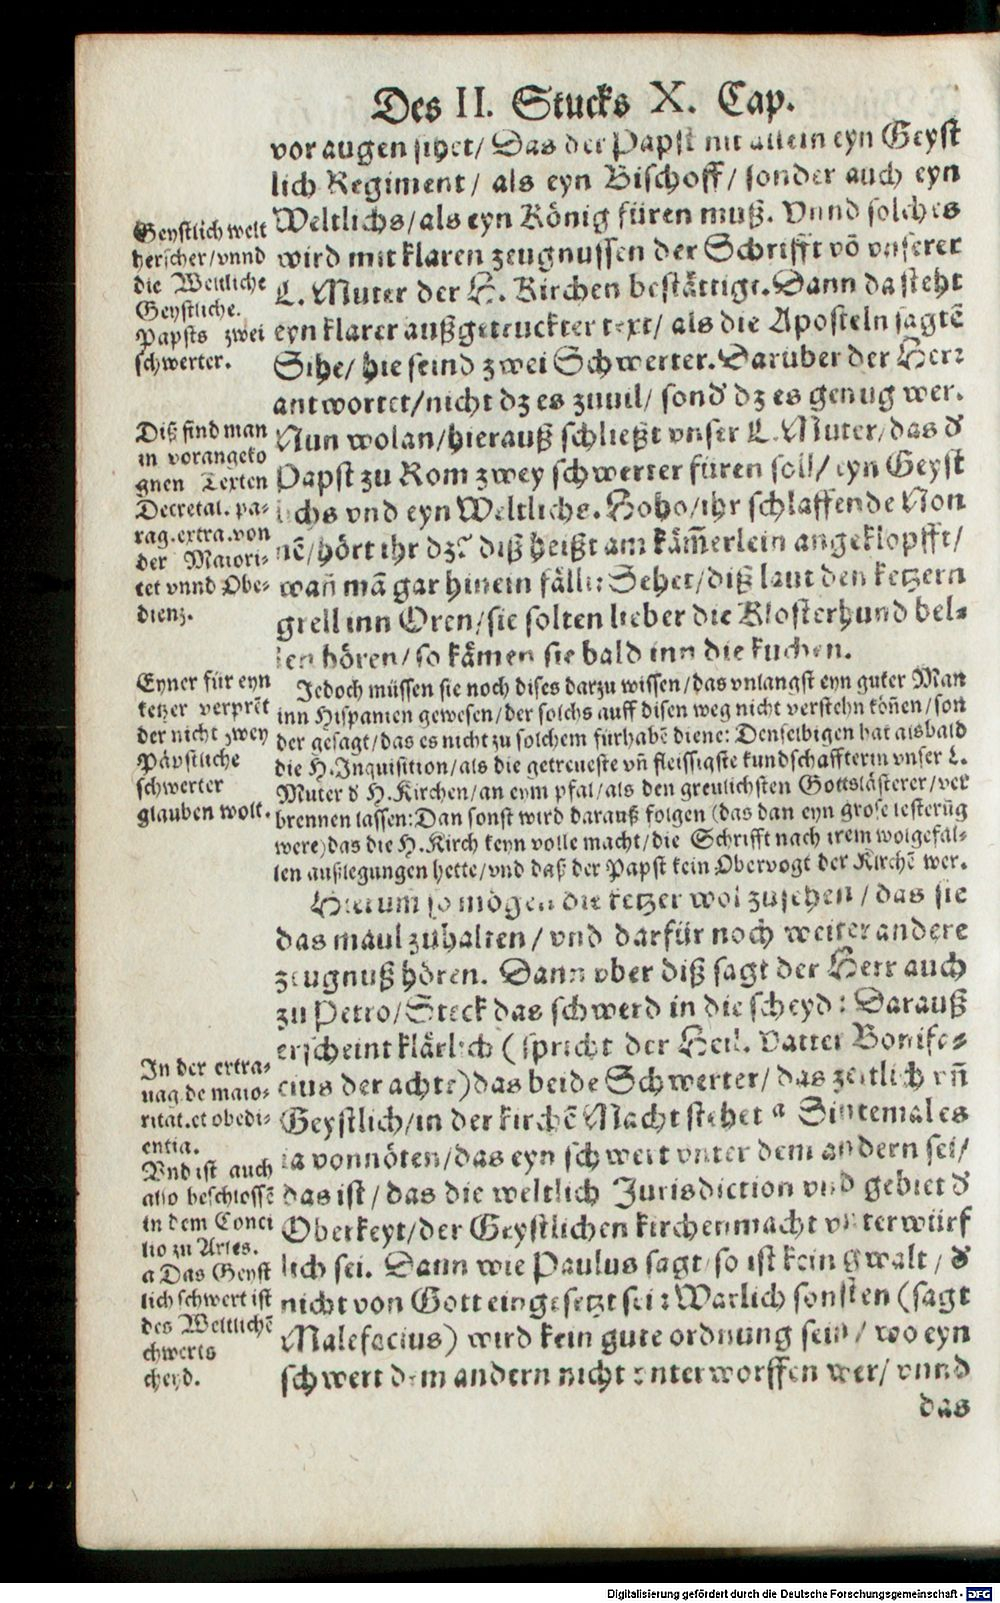 Des II. Stucks X. Cap.
vor augen sihet/ Das der Papst nit allein eyn Geyst
lich Regiment/ als eyn Bischoff/ sonder auch eyn
Weltlichs/als eyn König füren muß. Vnnd solches
wird mit klaren zeugnussen der Schrifft võ vnserer
L. Muter der H. Kirchen bestättigt. Dann da steht
eyn klarer außgetruckter text/ als die Aposteln sagtẽ
Sihe/ hie seind zwei Schwerter. Darüber der Herr
antwortet/nicht dz es zuuil/ sond' dz es genug wer.
Nun wolan/hierauß schließt vnser L. Muter/das d'
Papst zu Rom zwey schwerter füren soll/ eyn Geyst
lichs vnd eyn Weltlichs. Hoho/ihr schlaffende Non
nẽ/hört ihr dz? diß heißt am kãm̃erlein angeklopfft/
wañ mã gar hinein fällt: Sehet/diß laut den ketzern
grell inn Oren/sie solten lieber die Klosterhund bel-
len hören/so kämen sie bald inn die kuchen.
Jedoch müssen sie noch dises darzu wissen/das vnlangst eyn guter Man
inn Hispanien gewesen/der solchs auff disen weg nicht verstehn köñen/son
der gesagt/das es nicht zu solchem fürhabẽ diene: Denselbigen hat alsbald
die H. Inquisition/als die getreueste vñ fleissigste kundschaffterin vnser L.
Muter d' H. Kirchen/an eym pfal/als den greulichsten Gottslästerer/ver
brennen lassen: Dan sonst wird darauß folgen (das dan eyn grose lesterũg
were) das die H. Kirch keyn volle macht/die Schrifft nach irem wolgefal-
len außlegungen hette/vnd daß der Papst kein Obervogt der Kirchẽ wer.
Hierum so mögen die ketzer wol zusehen/das sie
das maul zuhalten/ vnd darfür noch weiter andere
zeugnuß hören. Dann vber diß sagt der Herr auch
zu Petro/Steck das schwerd in die scheyd: Darauß
erscheint klärlich (spricht der Heil. Vatter Bonifa-
cius der achte) das beide Schwerter/ das zeitlich vñ
Geystlich/in der kirchẽ Macht stehet a Sintemal es
ja vonnöten/das eyn schwert vnter dem andern sei/
das ist/das die weltlich Jurisdiction vnd gebiet d'
Oberkeyt/der Geystlichen kirchenmacht vnterwürf
lich sei. Dann wie Paulus sagt/so ist kein gwalt/ d'
nicht von Gott eingesetzt sei: Warlich sonsten (sagt
Malefacius) wird kein gute ordnung sein/ wo eyn
schwert dem andern nicht vnterworffen wer/ vnnd
das
Geystlich welt
herscher/vnnd
die Weltliche
Geystliche.
Papsts zwei
schwerter.
Diß find man
in vorangezo
gnen Texten
Decretal. pa-
rag.extra.von
der Maiori-
tet vnnd Obe-
dienz.
Eyner für eyn
ketzer verprẽt
der nicht zwey
Päpstliche
schwerter
glauben wolt.
In der extra-
uag.de maio-
ritat.et obedi-
entia.
Vnd ist auch
also beschlossẽ
in dem Conci
lio zu Arles.
a Das Geyst
lich schwert ist
des Weltlichẽ
chwerts
cheyd.
Digitalisierung gefördert durch die Deutsche Forschungsgemeinschaft - DFG